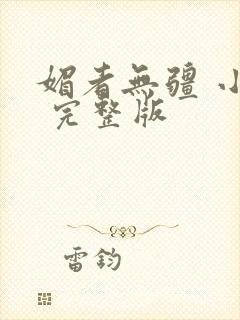 媚者無疆 小
完整版
雷鈞